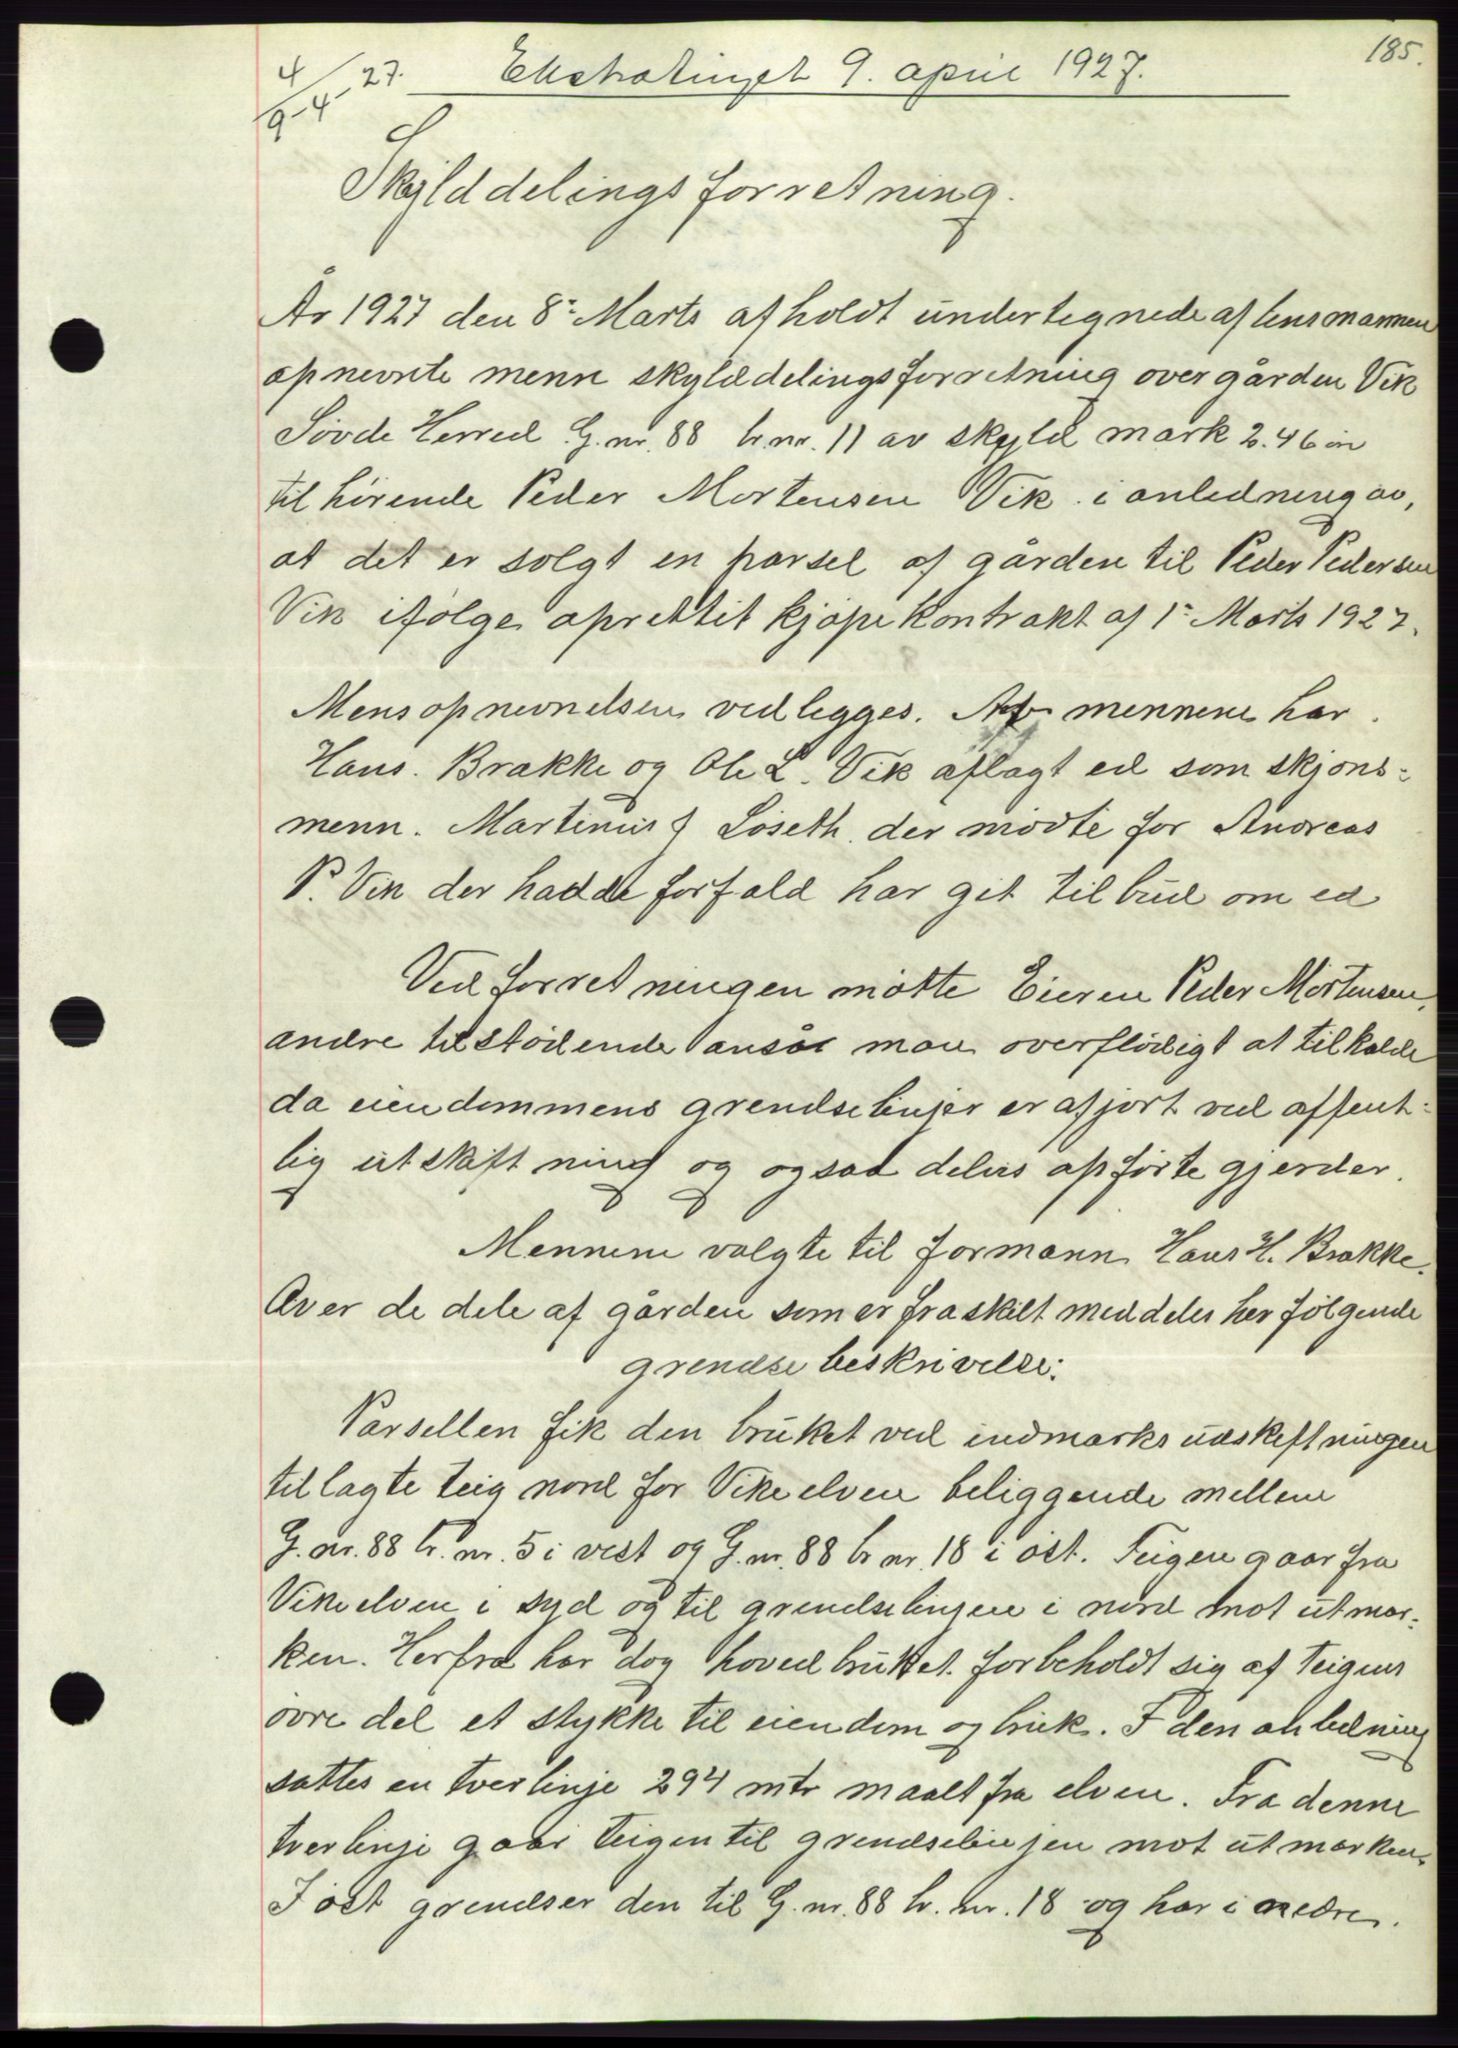 185.
4/9-4-27. Ekstratinget 9. april 1927.
Skylddelingsforretning.
År 1927 den 8: Marts afholdt undertegnede af lensmannen
opnevnte menn skylddelingsforretning over gården Vik
Søvde Herred G.nr. 88 br.nr. 11 av skyld mark 2.46 ør
tilhørende Peder Mortensen Vik i anledning av,
at det er solgt en parsel af gården til Peder Pedersen
Vik ifølge oprettet kjøpekontrakt af 1: Marts 1927.
Mensopnevnelsen vedlegges. Af mennene har
Hans. Brakke og Ole L. Vik aflagt ed som skjøns-
menn. Martinus J Løseth der mødte for Andreas
P. Vik der hadde forfald har git tilbud om ed
Ved forretningen møtte Eieren Peder Mortensen,
andre tilstødende ansås man overflødigt at tilkalde
da eiendommens grendselinjer er afjort ved offent-
lig utskiftning og ogsaa delvis opførte gjerder.
Mennene valgte til formann Hans H. Brakke.
Over de dele af gården som er fraskilt meddeles her følgende
grendsebeskrivelse:
Parsellen fik den bruket ved indmarksudskiftningen
tillagte teig nord for Vikeelven beliggende mellem
G.nr. 88 br.nr. 5 i vest og G.nr. 88 br nr. 18 i øst. Teigen gaar fra
Vikeelven i syd og til grendselinjen i nord mot utmar-
ken. Herfra har dog hovedbruket forbeholdt sig af teigens
øvre del et stykke til eiendom og bruk. I den anledning
sattes en tverlinje 294 mtr maalt fra elven. Fra denne
tverlinje gaar teigen til grendselinjen mot utmarken.
I øst grendser den til G.nr. 88 br. nr. 18 og har i nedre